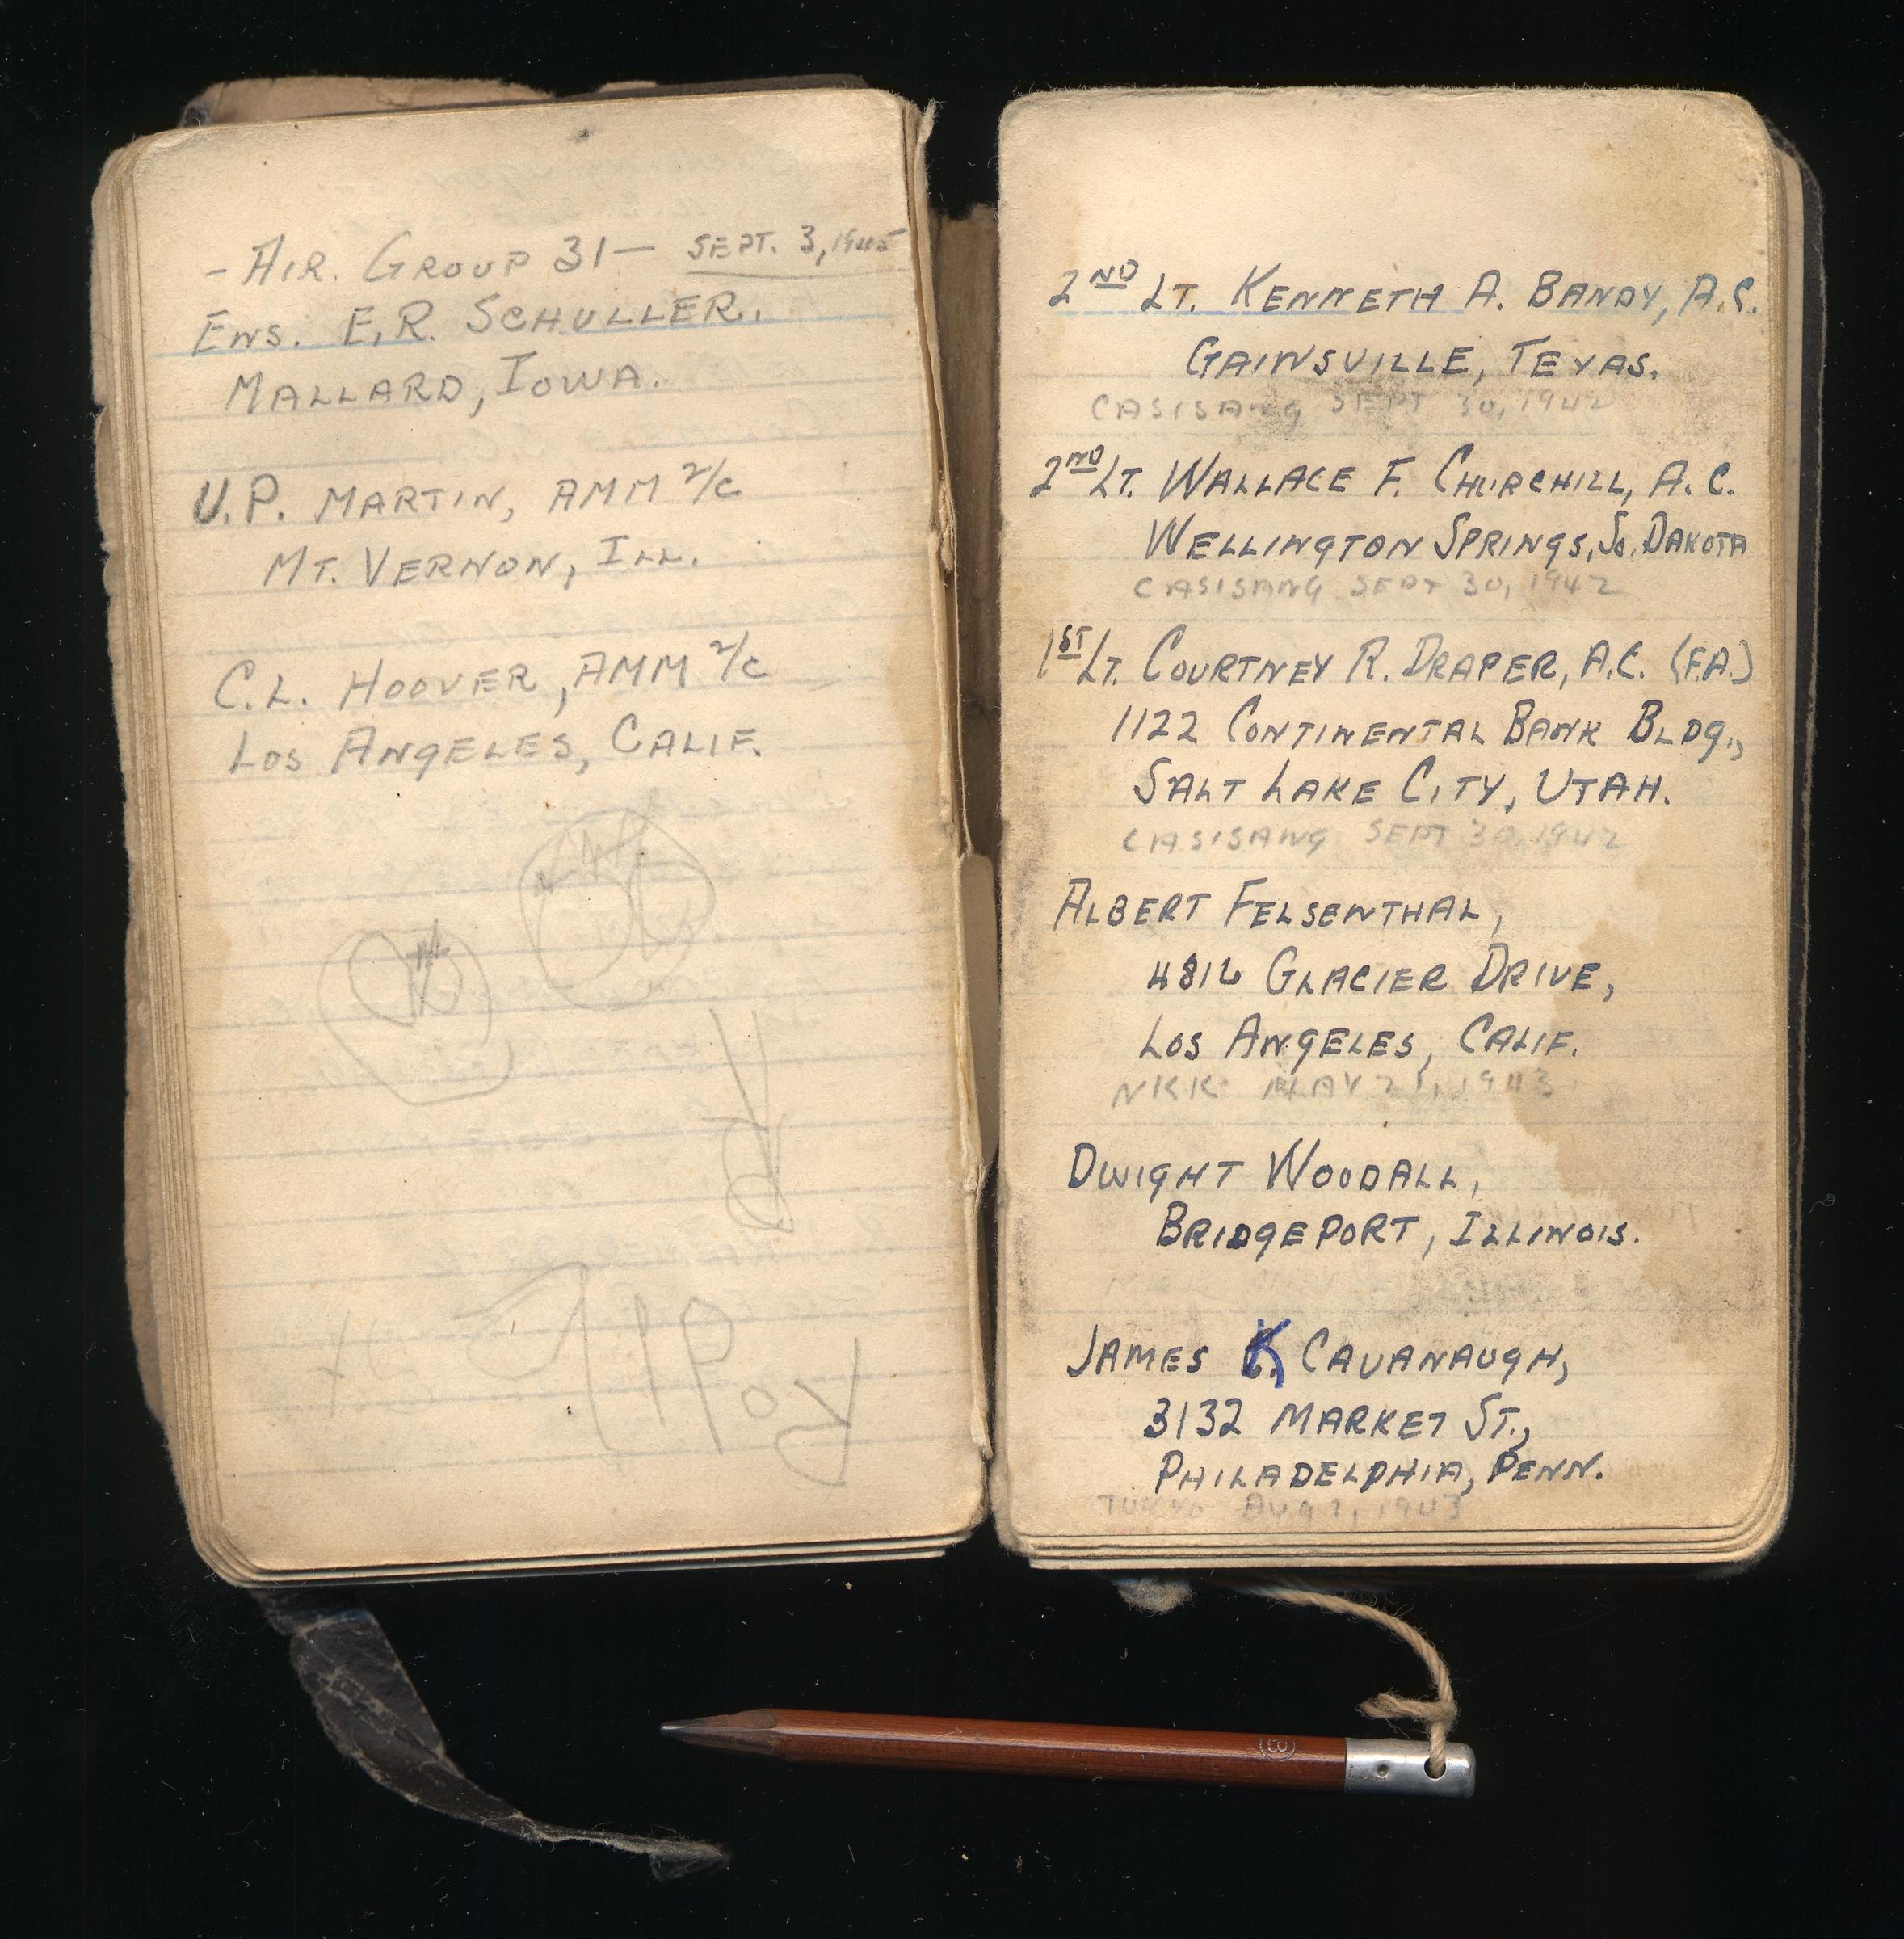 - AIR. GROUP 31 - SEPT. 3, 1945
ENS. E.R. SCHULLER.
MALLARD, IOWA.
V.P. MARTIN, AMM 2/C
MT. VERNON, ILL.
C.L. HOOVER, AMM 2/C
LOS ANGELES, CALIF.
2ND LT. KENNETH A. BANDY, A.C.
GAINSVILLE, TEXAS.
CASISANG SEPT 30, 1942
2ND LT. WALLACE F. CHURCHILL, A.C.
WELLINGTON SPRINGS, SO. DAKOTA
CASISANG SEPT 30, 1942
1ST LT. COURTNEY R. DRAPER, A.C. (F.A.)
1122 CONTINENTAL BANK BLDG.,
SALT LAKE CITY, UTAH.
CASISANG SEPT 30, 1942
ALBERT FELSENTHAL,
4816 GLACIER DRIVE,
LOS ANGELES, CALIF.
NKK MAY 21, 1943
DWIGHT WOODALL,
BRIDGEPORT, ILLINOIS.
JAMES K CAVANAUGH,
3132 MARKET ST.,
PHILADELPHIA, PENN.
TOKYO AUG 1, 1943